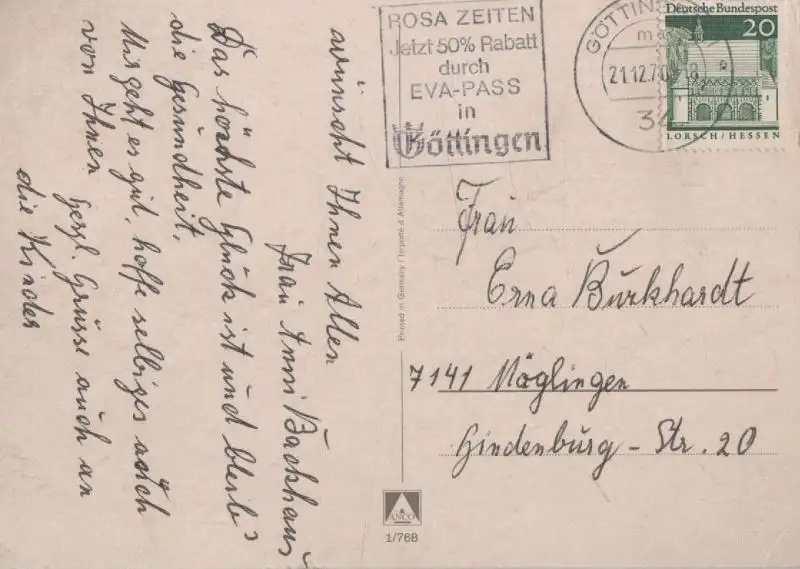 wünscht Ihnen Allen
Frau Anni Backhaus
Das höchste Glück ist und bleibt
die Gesundheit.
Mir geht es gut, hoffe selbiges auch
von Ihnen. Herzl. Grüsse auch an
die Kinder
Printed in Germany / Importé d'Allemagne
ANCO
1/768
ROSA ZEITEN
Jetzt 50% Rabatt
durch
EVA-PASS
in
Göttingen
GÖTTINGEN
21.12.70-18
34
Deutsche Bundespost
20
LORSCH/HESSEN
Frau
Erna Burkhardt
7141 Möglingen
Hindenburg-Str. 20